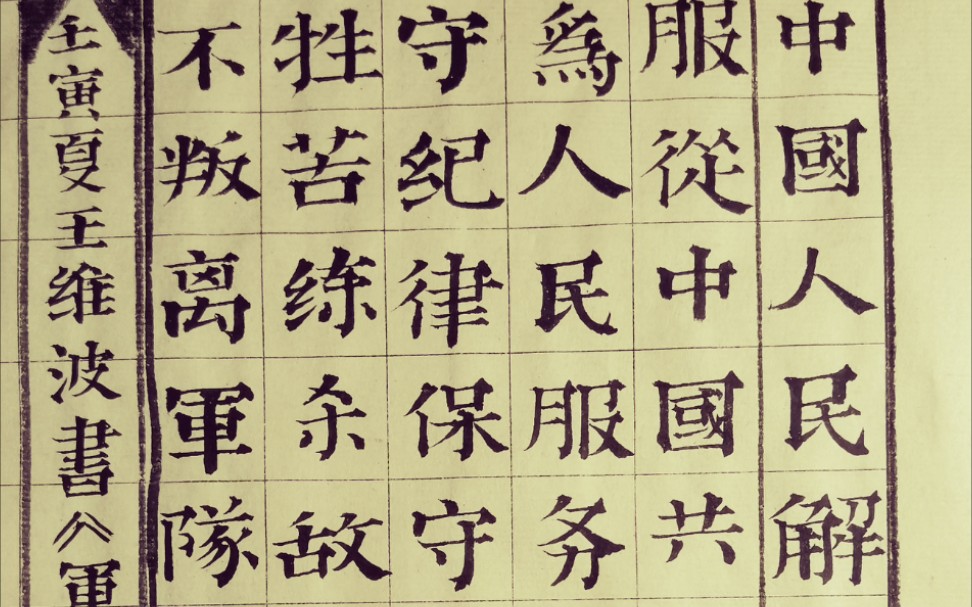 中國人民解
服從中國共
爲人民服务
守纪律保守
牲苦练杀敌
不叛离軍隊
壬寅夏王维波書《軍